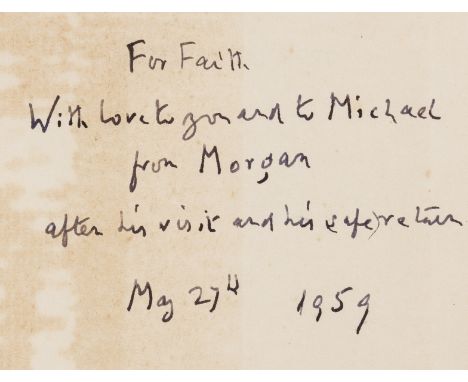 For Faith
With love to you and to Michael
from Morgan
after his visit and his (safe) return
May 27th 1959